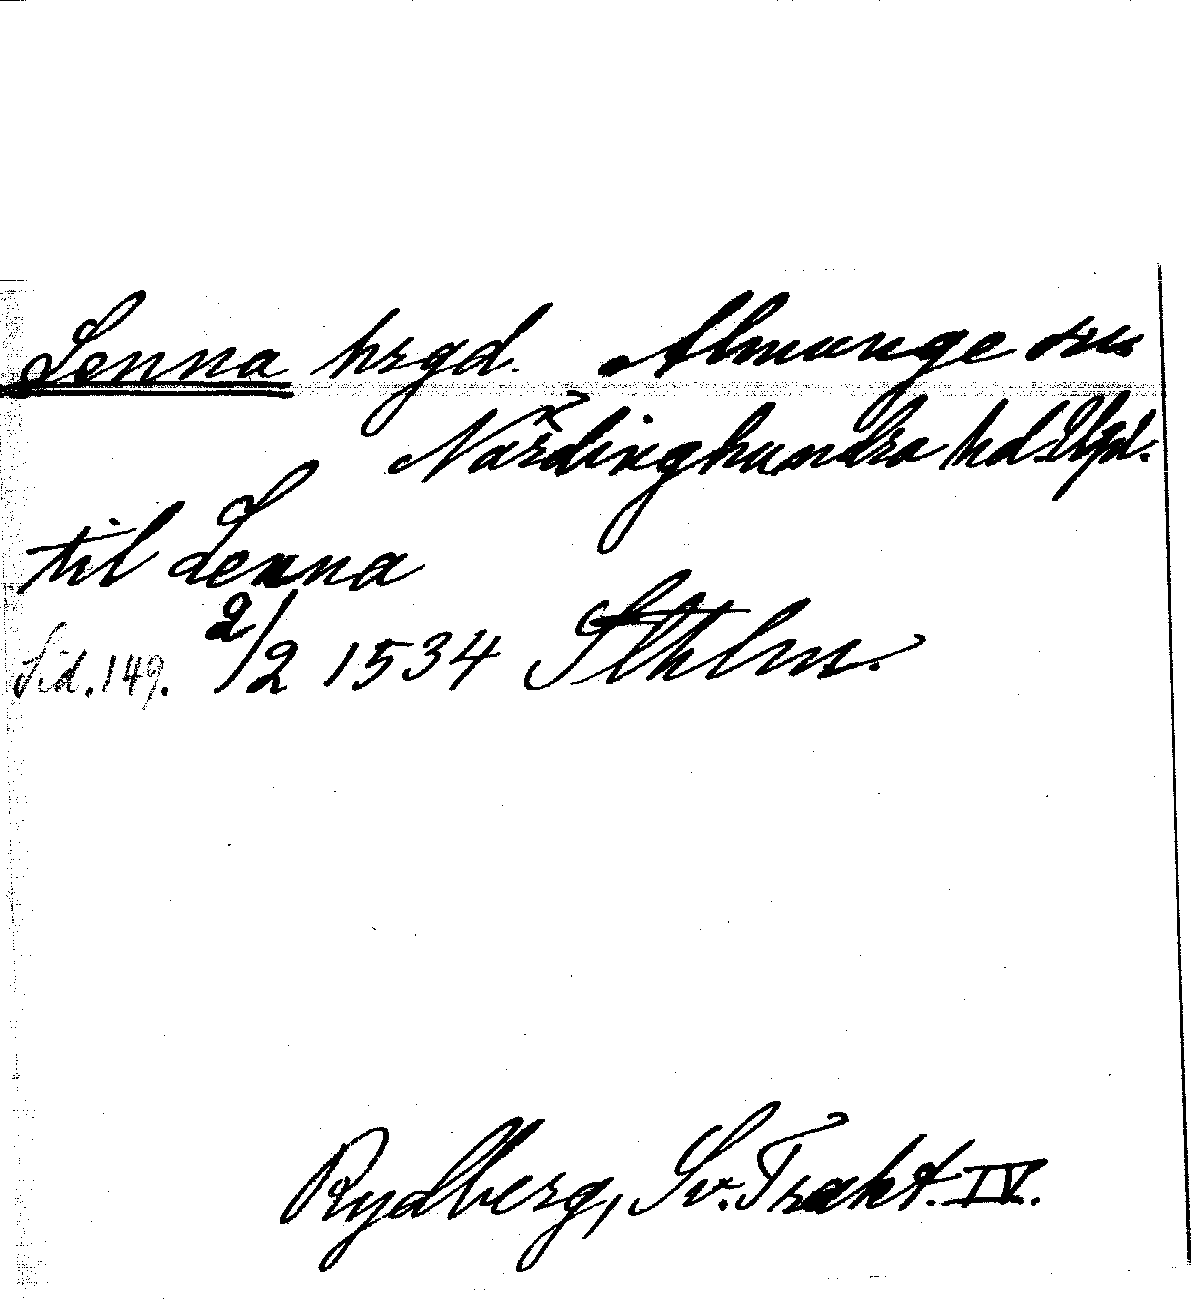 Lenna hrgd. Almunge sn
Närdinghundra hd Uppl.
til Lenna
Sid. 149. 2/2 1534 Sthlm.
Rydberg, Sv. Trakt. IV.